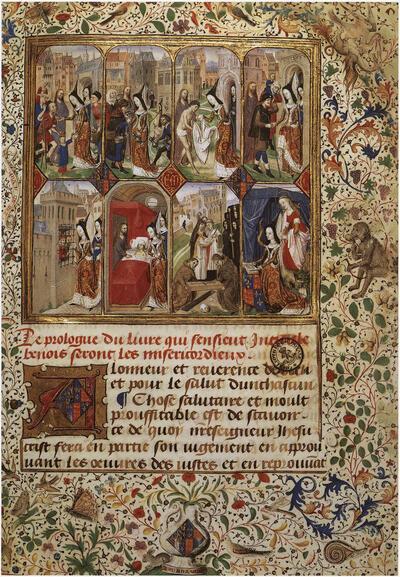 Le prologue du liure qui sensieut Intitule
benois seront les misericordieux.
Alonneur et reuerence de dieu
et pour le salut dunchascun
¶ Chose salutaire et moult
prouffitable est de scauoir
ce de quoy nreseigneur Jhesu
crist fera en partie son iugement en approu
uant les oeuures des iustes et en reprouuat